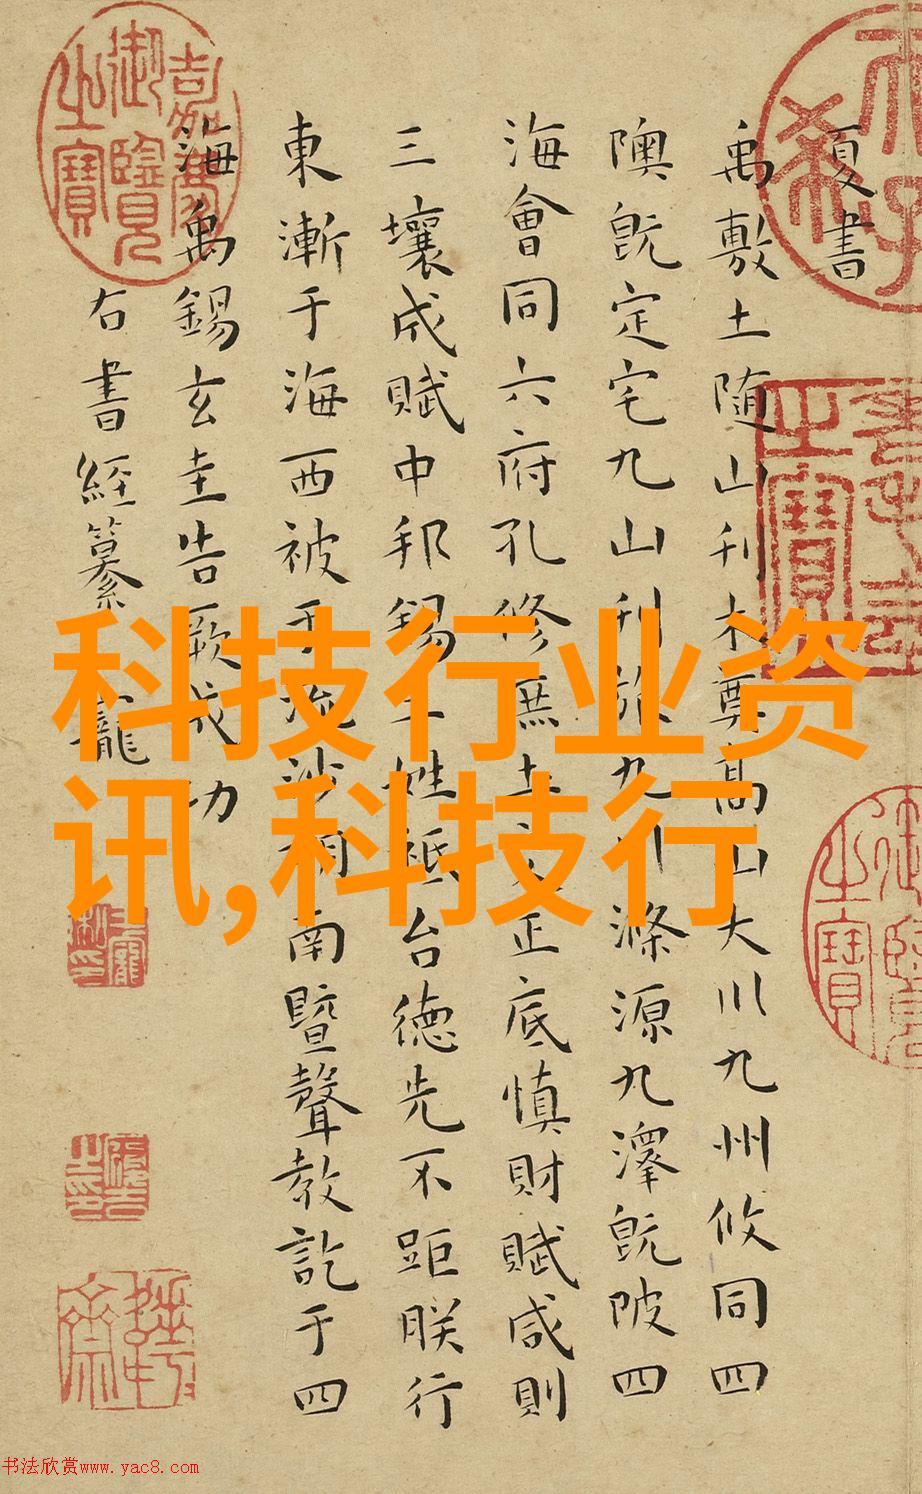 夏書
禹敷土随山刊木奠高山大川九州攸同四
隩既定宅九山刊旅九川滌源九澤既陂四
海會同六府孔修庶土交正底慎財賦咸則
三壤成賦中邦錫土姓祗台德先不距朕行
東漸于海西被于流沙朔南暨聲教訖于四
海禹錫玄圭告厥成功
右書經纂 寵
嘉慶御覽之寶
御覽之寶
科技行业资
讯,科技行
书法欣赏www.yac8.com